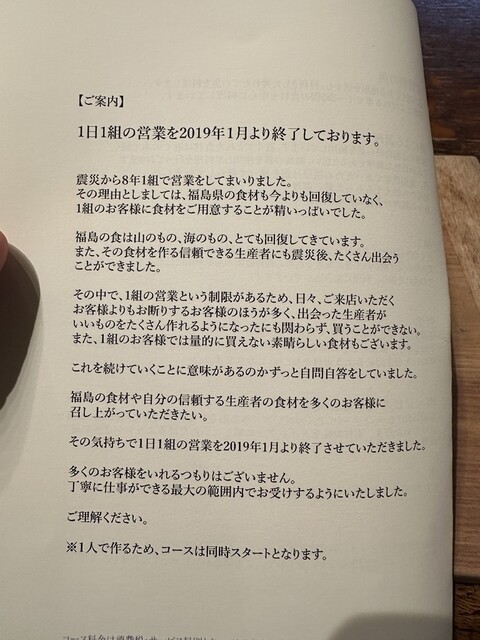 【ご案内】
1日1組の営業を2019年1月より終了しております。
震災から8年1組で営業をしてまいりました。
その理由としましては、福島県の食材も今よりも回復していなく、
1組のお客様に食材をご用意することが精いっぱいでした。
福島の食は山のもの、海のもの、とても回復してきています。
また、その食材を作る信頼できる生産者にも震災後、たくさん出会う
ことができました。
その中で、1組の営業という制限があるため、日々、ご来店いただく
お客様よりもお断りするお客様のほうが多く、出会った生産者が
いいものをたくさん作れるようになったにも関わらず、買うことができない。
また、1組のお客様では量的に買えない素晴らしい食材もございます。
これを続けていくことに意味があるのかずっと自問自答をしていました。
福島の食材や自分の信頼する生産者の食材を多くのお客様に
召し上がっていただきたい。
その気持ちで1日1組の営業を2019年1月より終了させていただきました。
多くのお客様をいれるつもりはございません。
丁寧に仕事ができる最大の範囲内でお受けするようにいたしました。
ご理解ください。
※1人で作るため、コースは同時スタートとなります。